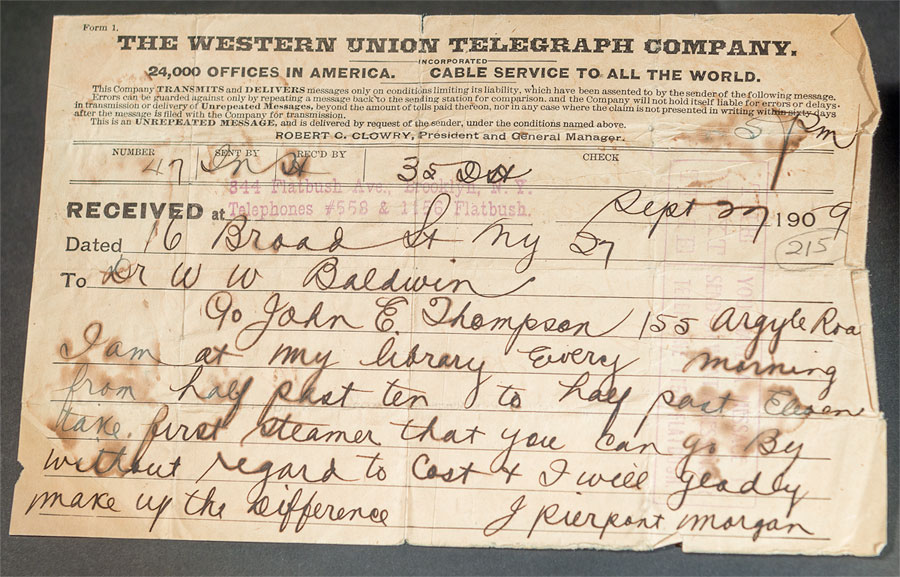 Form 1.
THE WESTERN UNION TELEGRAPH COMPANY.
INCORPORATED
24,000 OFFICES IN AMERICA. CABLE SERVICE TO ALL THE WORLD.
This Company TRANSMITS and DELIVERS messages only on conditions limiting its liability, which have been assented to by the sender of the following message.
Errors can be guarded against only by repeating a message back to the sending station for comparison, and the Company will not hold itself liable for errors or delays
in transmission or delivery of Unrepeated Messages, beyond the amount of tolls paid thereon, nor in any case where the claim is not presented in writing within sixty days
after the message is filed with the Company for transmission.
This is an UNREPEATED MESSAGE, and is delivered by request of the sender, under the conditions named above.
ROBERT C. CLOWRY, President and General Manager.
pm
NUMBER SENT BY REC'D BY CHECK
47 35
344 Flatbush Ave., Brooklyn, N. Y.
Telephones #558 & 1156 Flatbush.
RECEIVED at Sept 27 1909
215
Dated 16 Broad St Ny 27
To Dr W W Baldwin
c/o John E. Thompson 155 Argyle Roa
I am at my library Every morning
from half past ten to half past Eleven
take first steamer that you can go By
without regard to Cost & I will gladly
make up the Difference J Pierpont Morgan